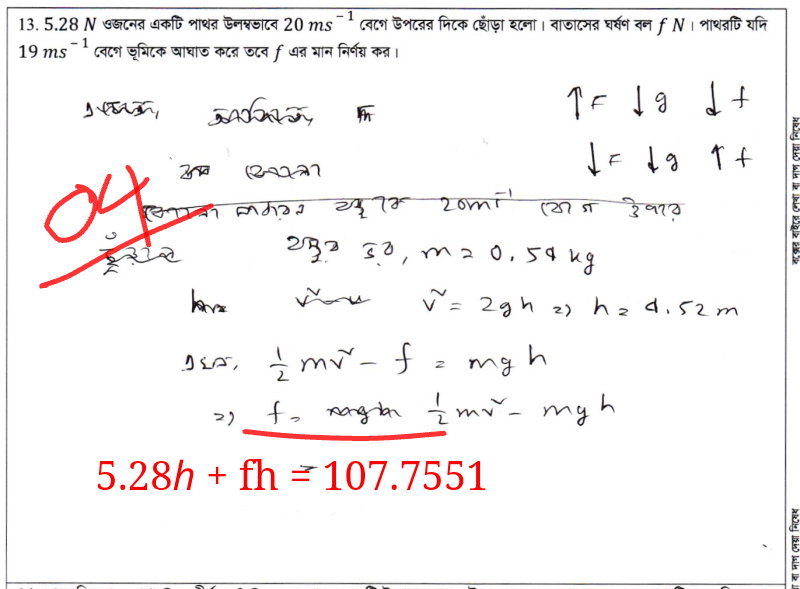 13. 5.28 N ওজনের একটি পাথর উলম্বভাবে 20 ms⁻¹ বেগে উপরের দিকে ছোঁড়া হলো। বাতাসের ঘর্ষণ বল f N। পাথরটি যদি
19 ms⁻¹ বেগে ভূমিকে আঘাত করে তবে f এর মান নির্ণয় কর।
↑F ↓g ↓f
↓F ↓g ↑f
04
20ms⁻¹ বেগে উপরে
বস্তুর ভর, m = 0.54 kg
v² = 2gh => h = 4.52 m
½mv² - f = mgh
=> f = ½mv² - mgh
5.28h + fh = 107.7551
বক্সের বাইরে লেখা বা দাগ দেয়া নিষেধ